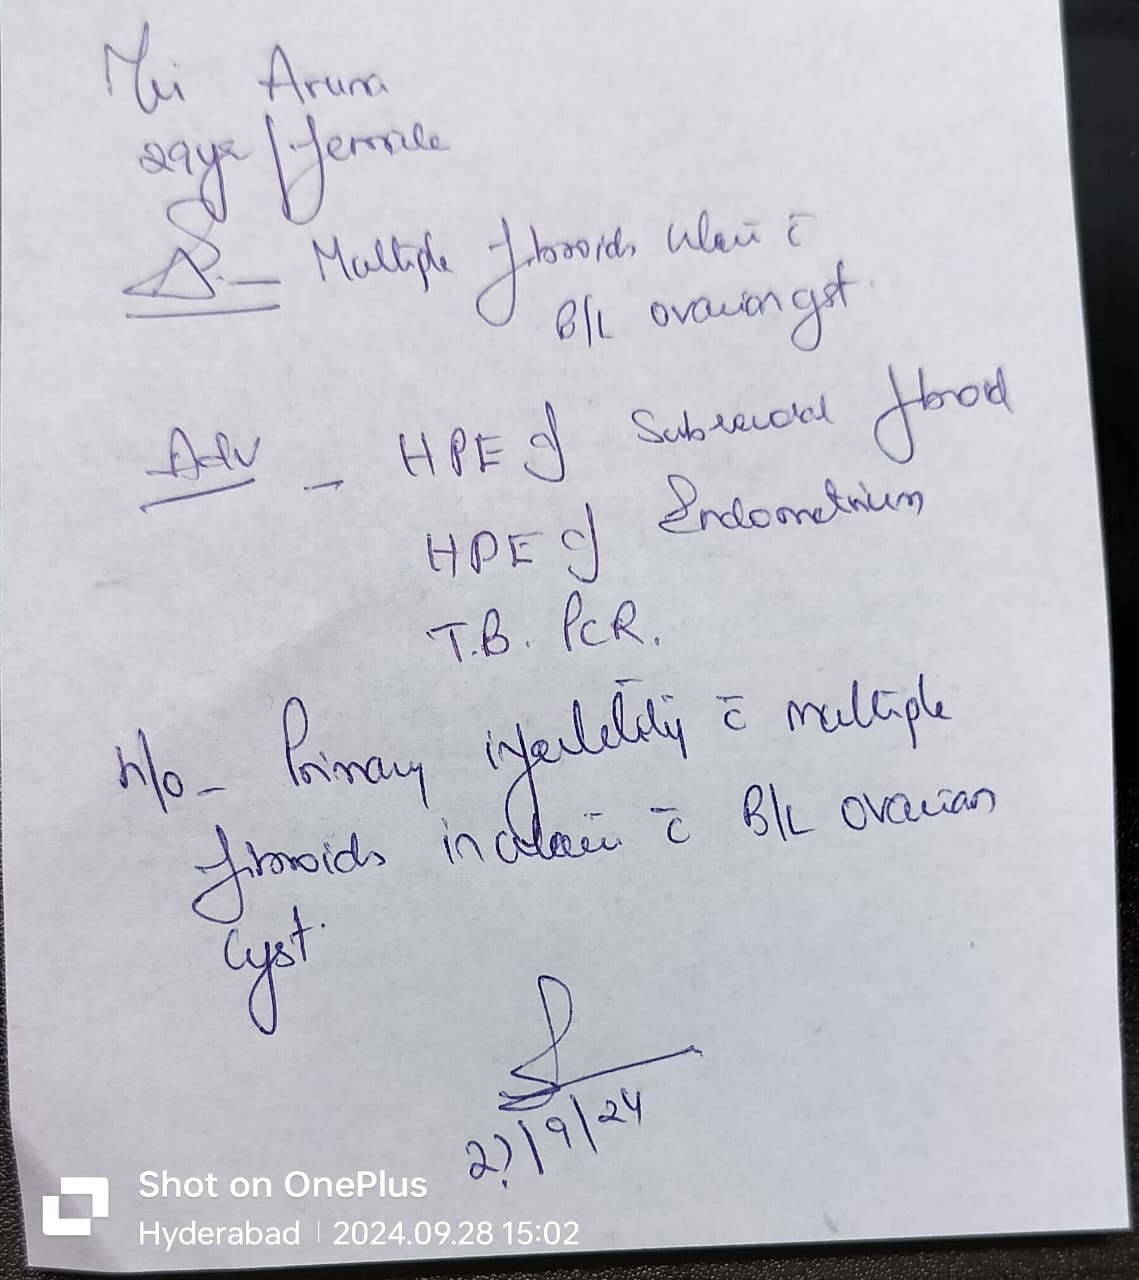 Aruna
29yr / female
Δ - Multiple fibroids uterus c̄
B/L ovarian cyst.
Adv - HPE of Submucosal fibroid
HPE of Endometrium
T.B. PCR.
h/o - Primary infertility c̄ multiple
fibroids in uterus c̄ B/L ovarian
cyst.
/9/24
Shot on OnePlus
Hyderabad | 2024.09.28 15:02